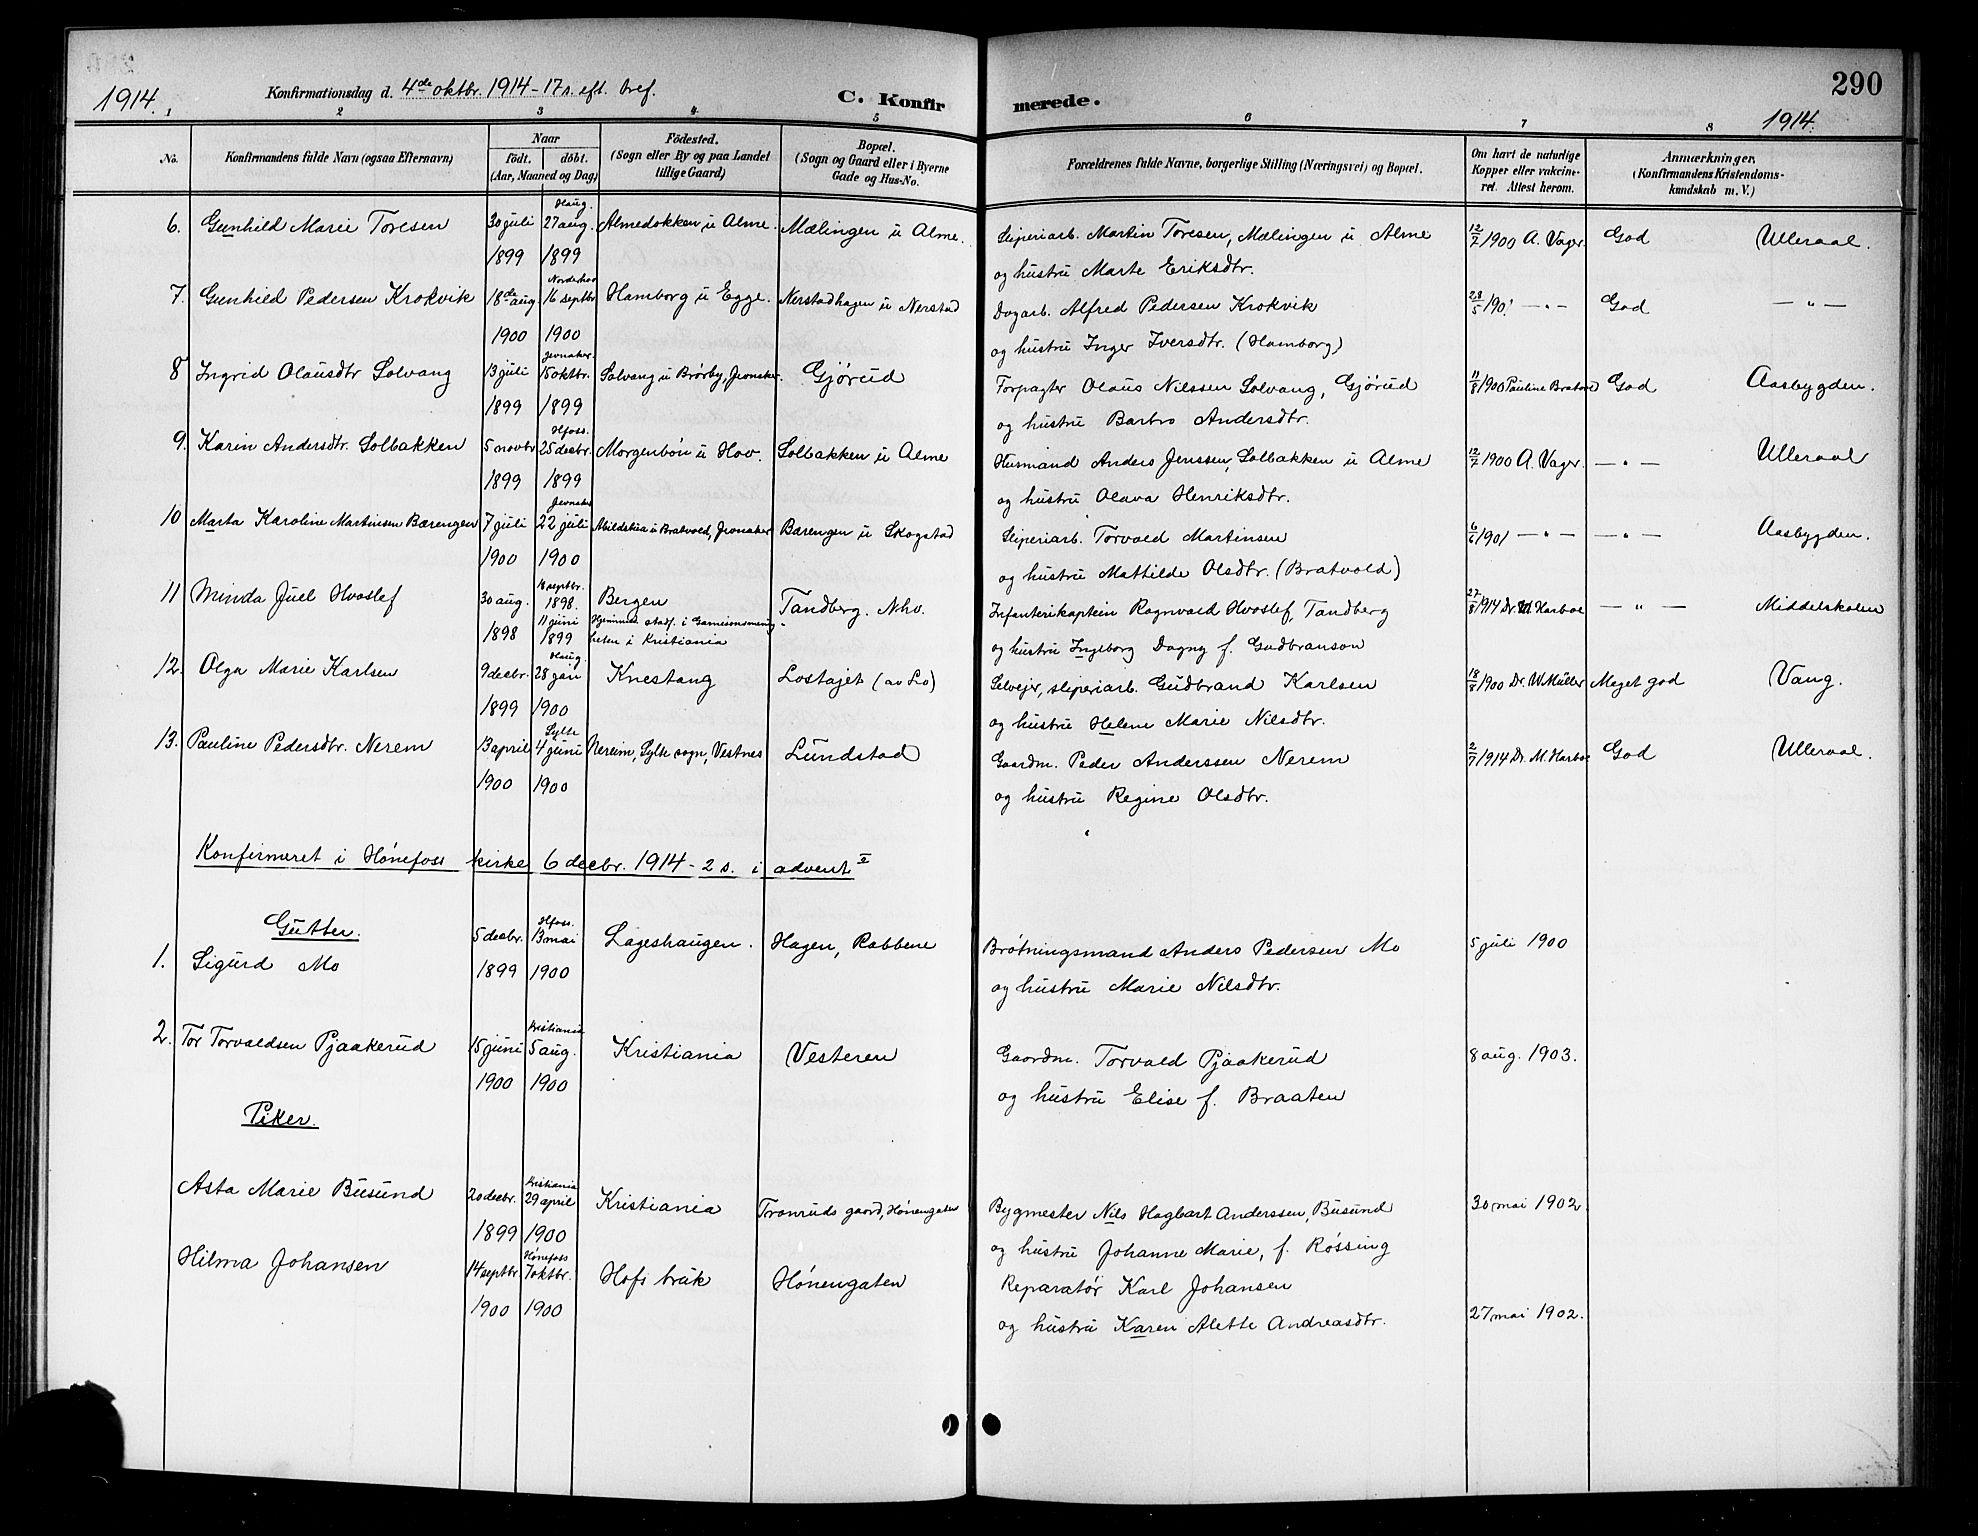 290
1914.
Konfirmationsdag d. 4de oktbr. 1914 - 17 s. eft. tref.
C. Konfirmerede.
1914.
1 2 3 4 5 6 7 8
No.
Konfirmandens fulde Navn (ogsaa Efternavn)
Naar
födt. döbt.
(Aar, Maaned og Dag)
Födested.
(Sogn eller By og paa Landet
tillige Gaard)
Bopæl.
(Sogn og Gaard eller i Byerne
Gade og Hus-No.
Forældrenes fulde Navne, borgerlige Stilling (Næringsvei) og Bopæl.
Om havt de naturlige
Kopper eller vakcine-
ret. Attest herom.
Anmærkninger,
(Konfirmandens Kristendoms-
kundskab m. V.)
Haug.
6. Gunhild Marie Toresen 30 juli 27 aug. Almedokken u Alme. Mælingen u Alme. Sliperiarb. Martin Toresen, Mælingen u Alme 12/7 1900 A. Vager. God Ulleraal.
1899 1899 og hustru Marte Eriksdtr.
Norderhov
7. Gunhild Pedersen Krokvik 18de aug 16 septbr Hamborg u Egge. Nerstadhagen u Nerstad Dagarb. Alfred Pedersen Krokvik 23/5 190! — " — God — " —
1900 1900 og hustru Inger Iversdtr. (Hamborg)
Jevnaker.
8 Ingrid Olausdtr Solvang 13 juli 15 oktbr. Solvang u Brørby, Jevnaker. Gjørud Forpagter Olaus Nilssen Solvang, Gjørud 11/8 1900 Pauline Bratvold God Aasbygden.
1899 1899 og hustru Barbro Andersdtr.
Hfoss.
9. Karin Andersdtr. Solbakken 5 novbr 25 decbr. Morgenbøn u Hov. Solbakken u Alme Husmand Anders Jenssen, Solbakken u Alme 12/7 1900 A. Vager. — " — Ulleraal
1899 1899 og hustru Olava Henriksdtr.
Jevnaker
10 Marta Karoline Martinsen Bærengen 7 juli 22 juli Mildstua u Bratvold, Jevnaker Bærengen u Skogstad Sliperiarb. Torvald Martinsen 6/6 1901 — " — — " — Aasbygden.
1900 1900 og hustru Mathilde Olsdtr. (Bratvold)
11 Minda Juel Hvoslef 30 aug. 18 septbr. 1898. Bergen Tandberg. Nhv. Infanterikaptein Ragnvald Hvoslef, Tandberg 27/8 1914 Dr. M Harboe — " — Middelskolen
1898 11 juni 1899 Hjemmed. stadf. i Garnisonsmenig-
heten i Kristiania og hustru Ingeborg Dagny f. Gudbranson
Haug.
12. Olga Marie Karlsen 9 decbr. 28 jan Knestang Lostajet (av Lo) Selvejer, sliperiarb. Gudbrand Karlsen 18/8 1900 Dr. W Müller Meget god Vang.
1899 1900 og hustru Helene Marie Nilsdtr.
Sylte
13. Pauline Pedersdtr. Nerem 13 april 4 juni Nereim, Sylte sogn, Vestnes Lundstad Gaardm. Peder Anderssen Nerem 2/7 1914 Dr. M. Harboe God Ulleraal.
1900 1900 og hustru Regine Olsdtr.
Konfirmeret i Hønefoss kirke 6 decbr. 1914 - 2 s. i advent
Gutter.
Hfoss.
1. Sigurd Mo 5 decbr. 13 mai Lageshaugen. Hagen, Rabbene Brøtningsmand Anders Pedersen Mo 5 juli 1900
1899 1900 og hustru Marie Nilsdtr.
Kristiania
2. Tor Torvaldsen Pjaakerud 15 juni 5 aug. Kristiania Vesteren Gaardm. Torvald Pjaakerud 8 aug. 1903.
1900 1900 og hustru Elise f. Braaten
Piker.
Kristiania
Asta Marie Busund 20 decbr. 29 april Kristiania Tranruds gaard, Hønengaten Bygmester Nils Hagbart Anderssen, Busund 30 mai 1902.
1899 1900 og hustru Johanne Marie, f. Røssing
Hønefoss
Hilma Johansen 14 septbr. 7 oktbr. Hofs bruk Hønengaten Reparatør Karl Johansen
1900 1900 og hustru Karen Alette Andreasdtr. 27 mai 1902.